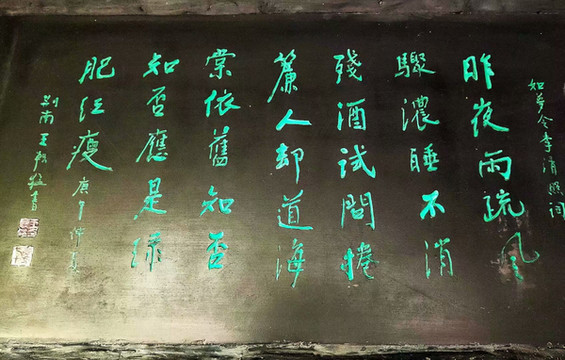 如梦令李清照词
昨夜雨疏风
驟濃睡不消
殘酒試問捲
簾人却道海
棠依舊知否
知否應是緑
肥红瘦 庚午仲夏
荆南王书